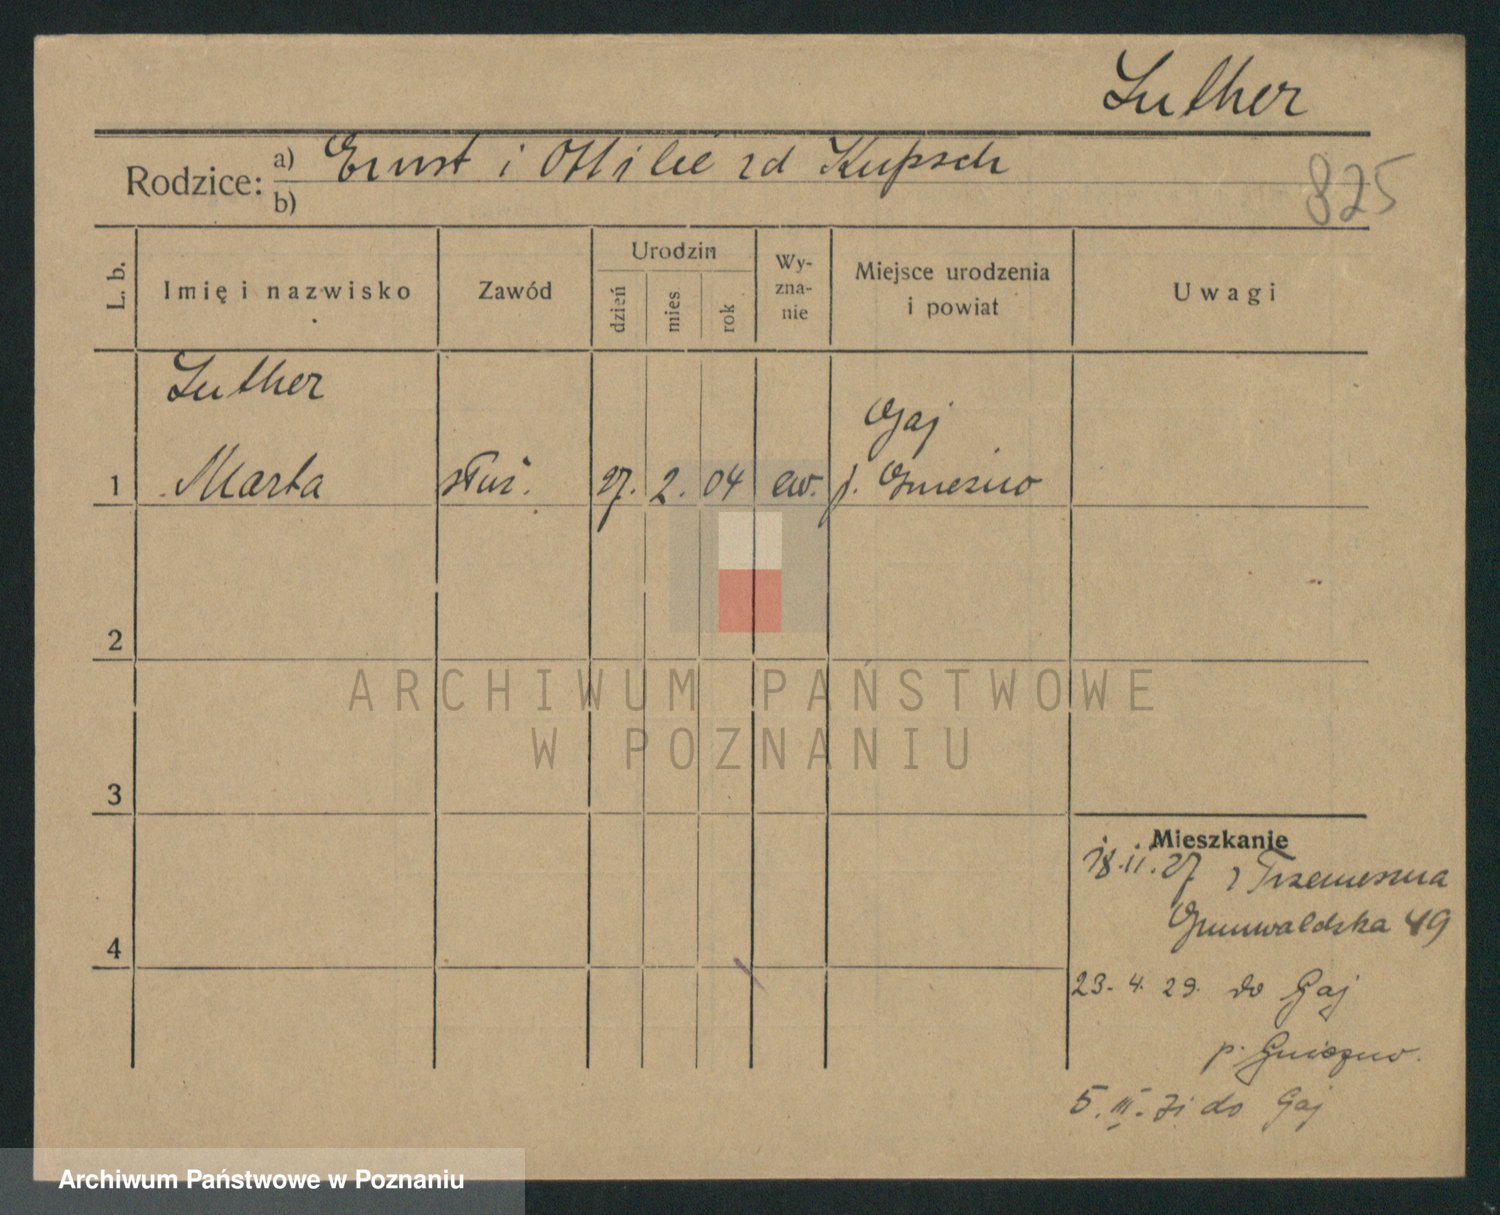 Luther
Rodzice: a) Ernst i Ottilie zd Kupsch
b)
825
L. b.
Imię i nazwisko
Zawód
Urodzin
dzień
mies
rok
Wy-
zna-
nie
Miejsce urodzenia
i powiat
Uwagi
Luther
1 Marta służ. 27. 2. 04 ew. Gaj
p. Gniezno
2
3
4
Mieszkanie
18.11.27 z Trzemeszna
Grunwaldzka 49
23. 4. 29. do Gaj
p. Gniezno.
5. III. 31 do Gaj
ARCHIWUM PAŃSTWOWE
W POZNANIU
Archiwum Państwowe w Poznaniu